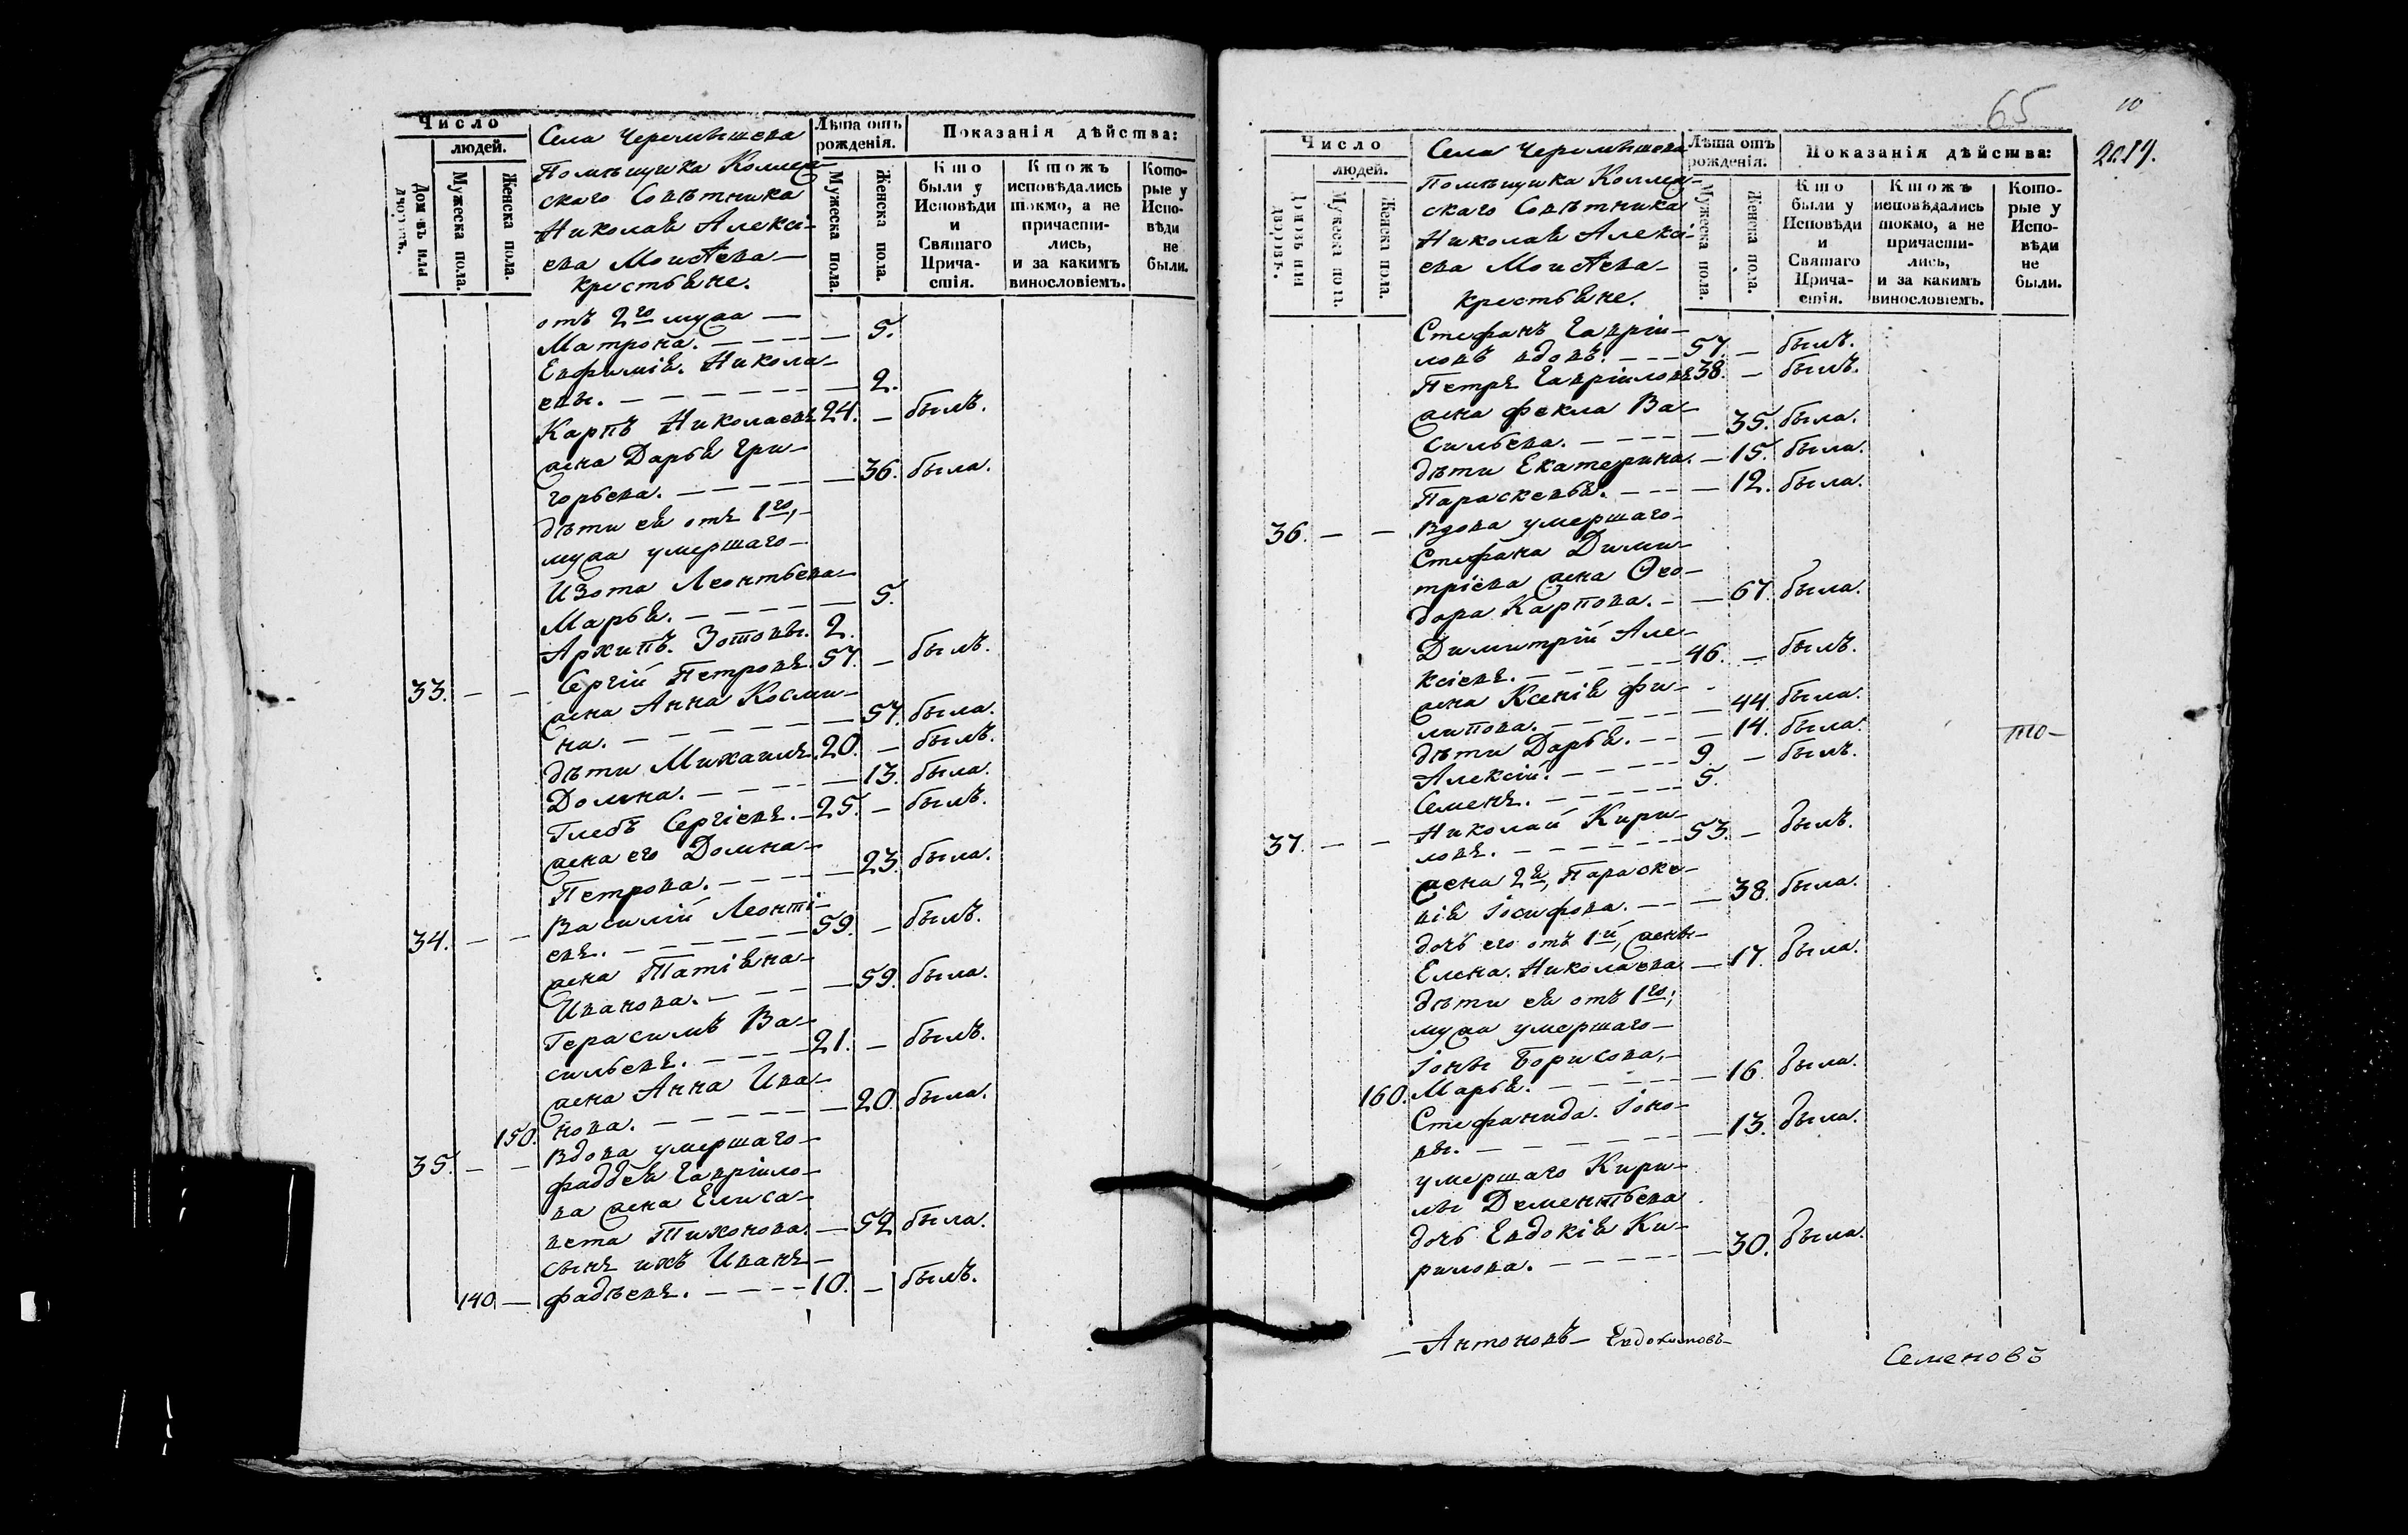 Число
людей.
Домовъ или дворовъ.
Мужеска пола.
Женска пола.
Села Черемѣшева
Помѣщика Коллеж-
скаго Совѣтника
Николая Алексѣ-
ева Моисѣева
крестьяне.
Лѣта отъ рожденія.
Мужеска пола.
Женска пола.
Показанія дѣйства:
Кто были у Исповѣди и Святаго Прича- стія.
Ктожъ исповѣдались токмо, а не причасти- лись, и за какимъ винословіемъ.
Кото- рые у Испо- вѣди не были.
отъ 2го мужа —
Матрона. — 5.
Евфимія. Никола-
евы. — 2.
Карпъ Николаевъ 24. — былъ.
жена Дарья Гри-
горьева. — 36. была.
дѣти ея отъ 1го,
мужа умершаго
Изота Леонтьева
Марья. — 5.
Архипъ. Зотовы. 2.
33. — — Сергій Петровъ. 57. — былъ.
жена Анна Косми-
на. — 57. была.
дѣти Михаилъ. 20. — былъ.
Домна. — 13. была.
Глебъ Сергіевъ. 25. — былъ.
жена его Домна
Петрова. — 23. была.
34. — — Василій Леонті-
евъ. 59. — былъ.
жена Татіяна
Иванова. — 59. была.
Герасимъ Ва-
сильевъ. 21. — былъ.
жена Анна Ива-
150. нова. — 20. была.
35. — — Вдова умершаго
Фаддея Гавріило-
ва жена Елиса-
вета Тихонова. — 52 была.
сынъ ихъ Иванъ
140. — Фадѣевъ. 10. — былъ.
65
10
2019.
Число
людей.
Домовъ или дворовъ.
Мужеска пола.
Женска пола.
Села Черемѣшева
Помѣщика Коллеж-
скаго Совѣтника
Николая Алексѣ-
ева Моисѣева
крестьяне.
Лѣта отъ рожденія.
Мужеска пола.
Женска пола.
Показанія дѣйства:
Кто были у Исповѣди и Святаго Прича- стія.
Ктожъ исповѣдались токмо, а не причасти- лись, и за какимъ винословіемъ.
Кото- рые у Испо- вѣди не были.
Стефанъ Гавріи-
ловъ вдовъ. 57. — былъ.
Петръ Гавріиловъ 38. — былъ.
жена Фекла Ва-
сильева. — 35. была.
дѣти Екатерина. — 15. была.
Параскевья. — 12. была.
36. — — Вдова умершаго
Стефана Дими-
тріева жена Ѳео-
дора Карпова. — 67. была.
Димитрій Але-
ксіевъ. 46. — былъ.
жена Ксенія Фи-
липова. — 44. была.
дѣти Дарья. — 14. была.
Алексій. 9. — былъ.
Семенъ. 5.
37. — — Николай Кири-
ловъ. 53. — былъ.
жена 2я, Параске-
вія Іосифова. — 38. была.
дочь его отъ 1й, жены
Елена. Николаева — 17. была.
дѣти ея отъ 1го;
мужа умершаго
Іоны Борисова,
160. Марья. — 16. была.
Стефанида. Іоно-
вы. — 13. была.
умершаго Кири-
лы Дементьева
дочь Евдокія Ки-
рилова. — 30. была.
— Антоновъ — Евдокимовъ —
Семеновъ